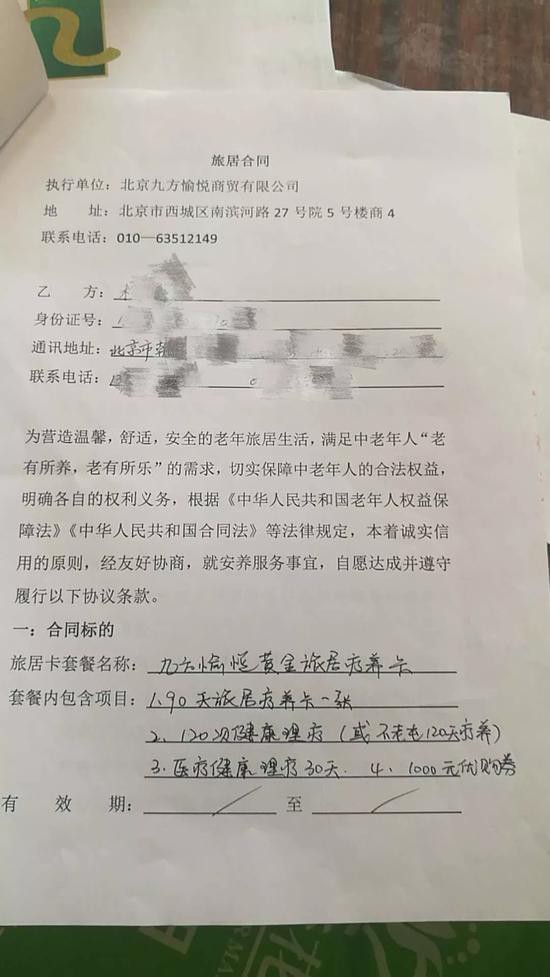 旅居合同
执行单位：北京九方愉悦商贸有限公司
地 址：北京市西城区南滨河路 27 号院 5 号楼商 4
联系电话：010—63512149
乙 方：
身份证号：
通讯地址：北京市
联系电话：
为营造温馨，舒适，安全的老年旅居生活，满足中老年人“老
有所养，老有所乐”的需求，切实保障中老年人的合法权益，
明确各自的权利义务，根据《中华人民共和国老年人权益保
障法》《中华人民共和国合同法》等法律规定，本着诚实信
用的原则，经友好协商，就安养服务事宜，自愿达成并遵守
履行以下协议条款。
一：合同标的
旅居卡套餐名称：九方愉悦黄金旅居疗养卡
套餐内包含项目：1.90天旅居疗养卡一张
2、120次健康理疗（或不老屯120天疗养）
3.医疗健康理疗30天. 4、1000元优购券
有 效 期： / 至 /